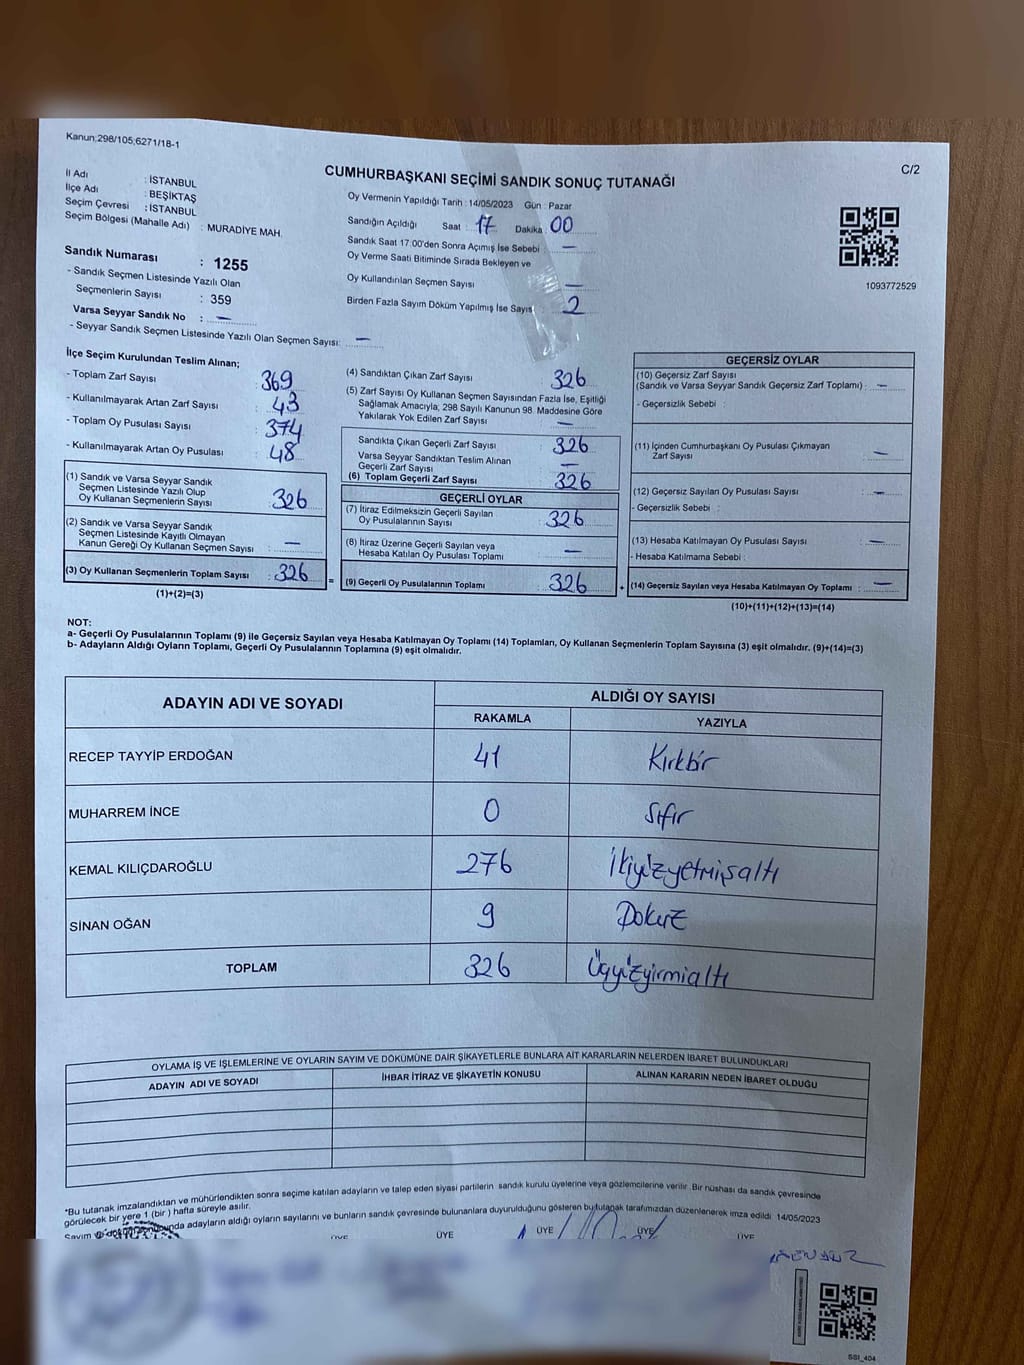 Kanun;298/105;6271/18-1
C/2
CUMHURBAŞKANI SEÇİMİ SANDIK SONUÇ TUTANAĞI
İl Adı : İSTANBUL
İlçe Adı : BEŞİKTAŞ
Seçim Çevresi : İSTANBUL
Seçim Bölgesi (Mahalle Adı) : MURADİYE MAH.
Sandık Numarası : 1255
- Sandık Seçmen Listesinde Yazılı Olan
Seçmenlerin Sayısı : 359
Varsa Seyyar Sandık No : —
- Seyyar Sandık Seçmen Listesinde Yazılı Olan Seçmen Sayısı: —
Oy Vermenin Yapıldığı Tarih : 14/05/2023 Gün : Pazar
Sandığın Açıldığı Saat : 17 Dakika : 00
Sandık Saat 17.00'den Sonra Açımış İse Sebebi : —
Oy Verme Saati Bitiminde Sırada Bekleyen ve
Oy Kullandırılan Seçmen Sayısı —
Birden Fazla Sayım Döküm Yapılmış İse Sayısı 2
1093772529
İlçe Seçim Kurulundan Teslim Alınan;
- Toplam Zarf Sayısı : 369
- Kullanılmayarak Artan Zarf Sayısı : 43
- Toplam Oy Pusulası Sayısı : 374
- Kullanılmayarak Artan Oy Pusulası : 48
(1) Sandık ve Varsa Seyyar Sandık
Seçmen Listesinde Yazılı Olup
Oy Kullanan Seçmenlerin Sayısı : 326
(2) Sandık ve Varsa Seyyar Sandık
Seçmen Listesinde Kayıtlı Olmayan
Kanun Gereği Oy Kullanan Seçmen Sayısı : —
(3) Oy Kullanan Seçmenlerin Toplam Sayısı : 326
(1)+(2)=(3)
=
(4) Sandıktan Çıkan Zarf Sayısı : 326
(5) Zarf Sayısı Oy Kullanan Seçmen Sayısından Fazla İse, Eşitliği
Sağlamak Amacıyla; 298 Sayılı Kanunun 98. Maddesine Göre
Yakılarak Yok Edilen Zarf Sayısı : —
Sandıkta Çıkan Geçerli Zarf Sayısı : 326
Varsa Seyyar Sandıktan Teslim Alınan
Geçerli Zarf Sayısı : —
(6) Toplam Geçerli Zarf Sayısı : 326
GEÇERLİ OYLAR
(7) İtiraz Edilmeksizin Geçerli Sayılan
Oy Pusulalarının Sayısı : 326
(8) İtiraz Üzerine Geçerli Sayılan veya
Hesaba Katılan Oy Pusulası Toplamı : —
(9) Geçerli Oy Pusulalarının Toplamı : 326
+
GEÇERSİZ OYLAR
(10) Geçersiz Zarf Sayısı
(Sandık ve Varsa Seyyar Sandık Geçersiz Zarf Toplamı) : —
- Geçersizlik Sebebi :
(11) İçinden Cumhurbaşkanı Oy Pusulası Çıkmayan
Zarf Sayısı : —
(12) Geçersiz Sayılan Oy Pusulası Sayısı : —
- Geçersizlik Sebebi :
(13) Hesaba Katılmayan Oy Pusulası Sayısı : —
- Hesaba Katılmama Sebebi :
(14) Geçersiz Sayılan veya Hesaba Katılmayan Oy Toplamı : —
(10)+(11)+(12)+(13)=(14)
NOT:
a- Geçerli Oy Pusulalarının Toplamı (9) ile Geçersiz Sayılan veya Hesaba Katılmayan Oy Toplamı (14) Toplamları, Oy Kullanan Seçmenlerin Toplam Sayısına (3) eşit olmalıdır. (9)+(14)=(3)
b- Adayların Aldığı Oyların Toplamı, Geçerli Oy Pusulalarının Toplamına (9) eşit olmalıdır.
ADAYIN ADI VE SOYADI
ALDIĞI OY SAYISI
RAKAMLA YAZIYLA
RECEP TAYYİP ERDOĞAN 41 Kırkbir
MUHARREM İNCE 0 Sıfır
KEMAL KILIÇDAROĞLU 276 İkiyüzyetmişaltı
SİNAN OĞAN 9 Dokuz
TOPLAM 326 Üçyüzyirmialtı
OYLAMA İŞ VE İŞLEMLERİNE VE OYLARIN SAYIM VE DÖKÜMÜNE DAİR ŞİKAYETLERLE BUNLARA AİT KARARLARIN NELERDEN İBARET BULUNDUKLARI
ADAYIN ADI VE SOYADI İHBAR İTİRAZ VE ŞİKAYETİN KONUSU ALINAN KARARIN NEDEN İBARET OLDUĞU
*Bu tutanak imzalandıktan ve mühürlendikten sonra seçime katılan adayların ve talep eden siyasi partilerin sandık kurulu üyelerine veya gözlemcilerine verilir. Bir nüshası da sandık çevresinde
görülecek bir yere 1 (bir ) hafta süreyle asılır.
Sayım ve sonunda adayların aldığı oyların sayılarını ve bunların sandık çevresinde bulunanlara duyurulduğunu gösteren bu tutanak tarafımızdan düzenlenerek imza edildi. 14/05/2023
ÜYE ÜYE ÜYE ÜYE ÜYE
SSI_404